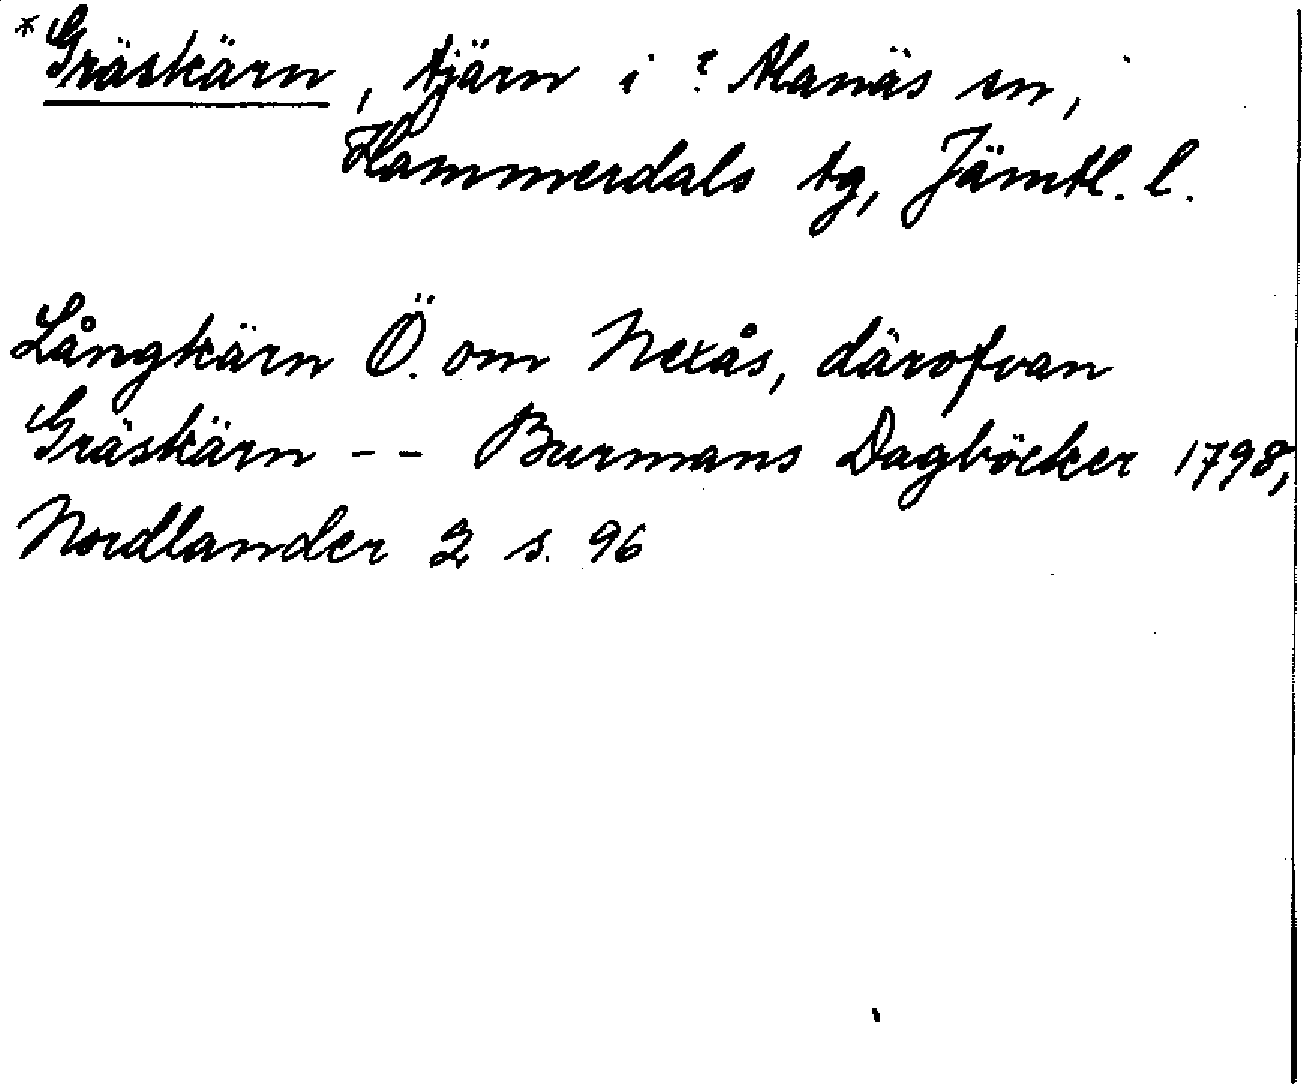 *Gräskärn, tjärn i ? Alanäs sn,
Hammerdals tg, Jämtl. l.
Långkärn Ö. om Nexås, därofvan
Gräskärn -- Burmans Dagböcker 1798,
Nordlander 2 s. 96